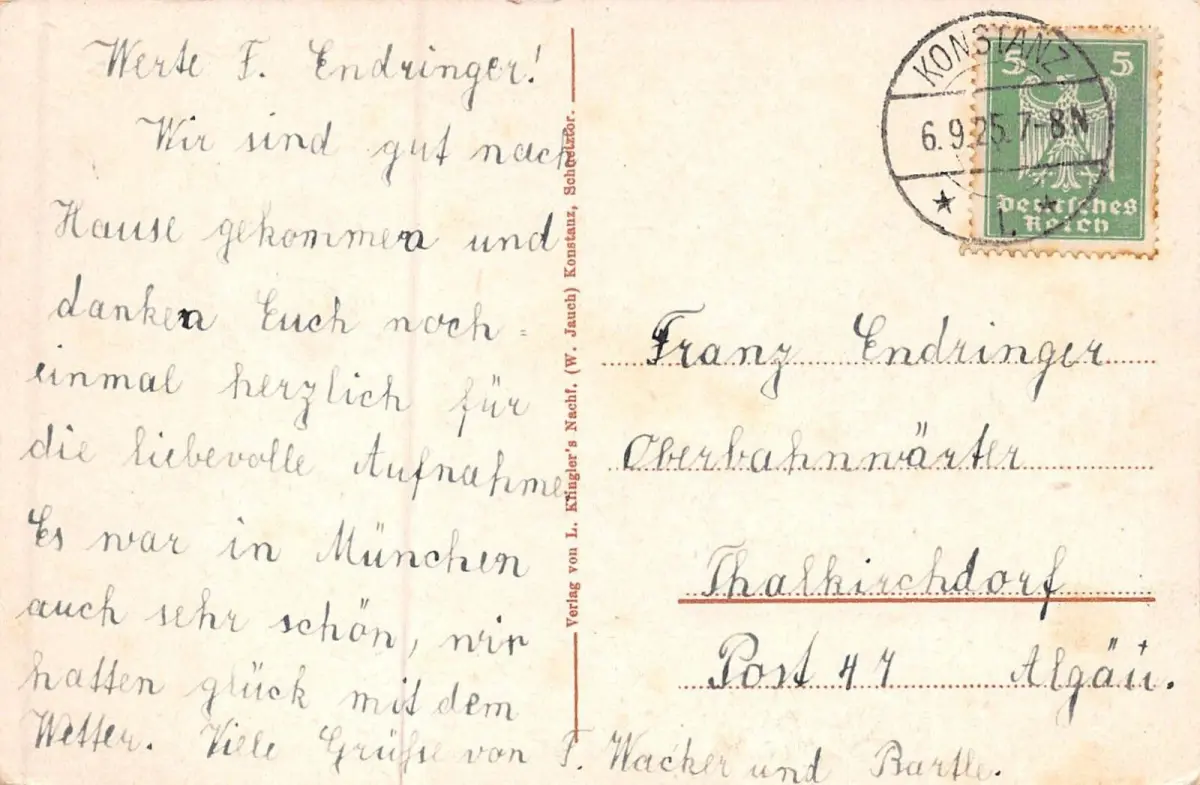 Werte F. Endringer!
Wir sind gut nach
Hause gekommen und
danken Euch noch=
einmal herzlich für
die liebevolle Aufnahme.
Es war in München
auch sehr schön, wir
hatten glück mit dem
Wetter. Viele Grüße von F. Wacker und Bartle.
Verlag von L. Klingler's Nachf. (W. Jauch) Konstanz, Schnetztor.
KONSTANZ
6.9.25. 7-8N
★ 1. ★
5 5
Deutsches
Reich
Franz Endringer
Oberbahnwärter
Thalkirchdorf
Post 47 Algäu.